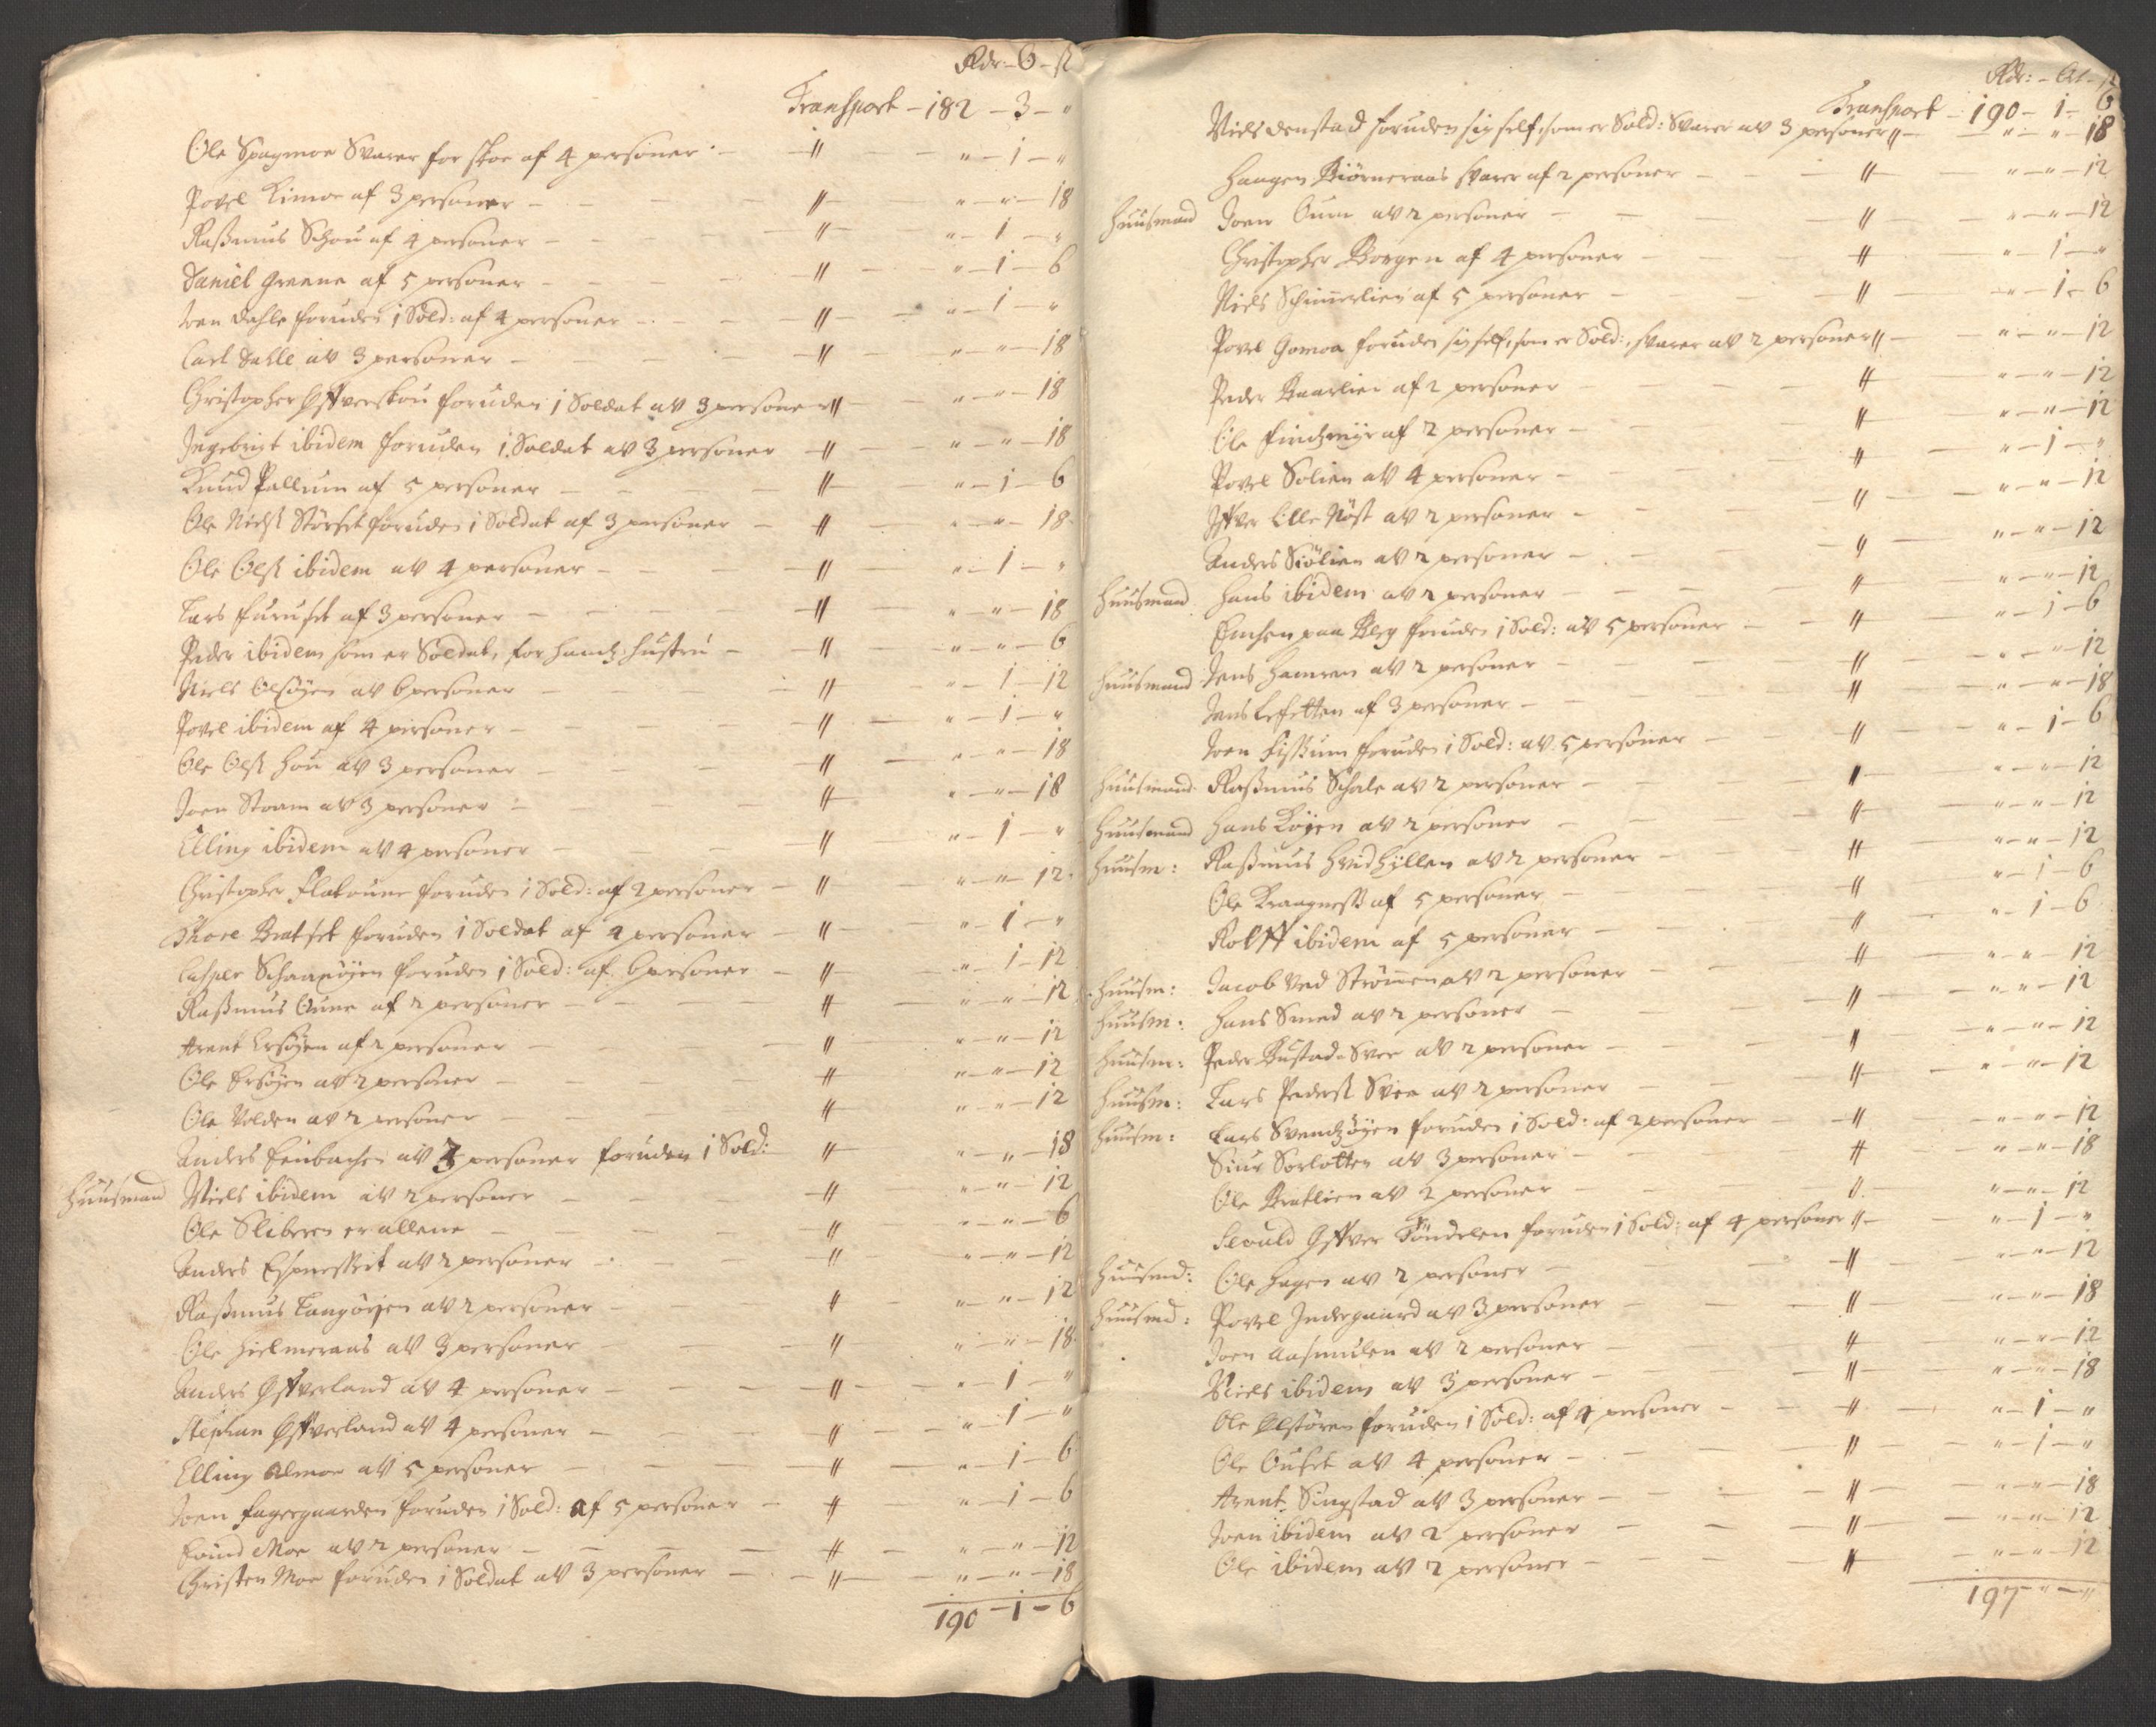 Rdr – 6 – ß
Transport – 182 – 3 – "
Ole Spagmoe Svarer for skoe af 4 personer – " – " – 1 – "
Povel Kimoe af 3 personer – " – " – " – 18
Raßmus Schou af 4 personer – " – " – 1 – "
Daniel Greene af 5 personer – " – " – 1 – 6
Joen Dahle foruden 1 Sold: af 4 personer – " – " – 1 – "
Carl Dahle av 3 personer – " – " – " – 18
Christopher Østverskou foruden 1 Soldat av 3 personer " – " – " – 18
Ingebrigt ibidem foruden 1 Soldat av 3 personer – " – " – " – 18
Knud Pallum af 5 personer – " – " – 1 – 6
Ole Nielß Størset foruden 1 Soldat af 3 personer – " – " – " – 18
Ole Olß ibidem av 4 personer – " – " – 1 – "
Lars Furuset af 3 personer – " – " – " – 18
Peder ibidem som er Soldat, for hands hustru – " – " – " – 6
Niels Olsøyen av 6 personer – " – " – 1 – 12
Povel ibidem af 4 personer – " – " – 1 – "
Ole Olß hou av 3 personer – " – " – " – 18
Joen Stoam av 3 personer – " – " – " – 18
Elling ibidem av 4 personer – " – " – 1 – "
Christopher Flatoune foruden 1 Sold: af 2 personer – " – " – " – 12
Thore Bratset foruden 1 Soldat af 4 personer – " – " – 1 – "
Casper Schaanøyen foruden 1 Sold: af 6 personer – " – " – 1 – 12
Raßmus Aune af 2 personer – " – " – " – 12
Arent Ersøyen af 2 personer – " – " – " – 12
Ole Ersøyen av 2 personer – " – " – " – 12
Ole Volden av 2 personer – " – " – " – 12
Anders Einbachen av 3 personer foruden 1 Sold: " – " – " – 18
Huusmand Niels ibidem av 2 personer – " – " – " – 12
Ole Sliberen er allene – " – " – " – 6
Anders Espnesset av 2 personer – " – " – " – 12
Raßmus Langøyen av 2 personer – " – " – " – 12
Ole Hielmeraas av 3 personer – " – " – " – 18
Anders Østverland av 4 personer – " – " – 1 – "
Stephan Østverland av 4 personer – " – " – 1 – "
Elling Almoe av 5 personer – " – " – 1 – 6
Joen Fagergaarden foruden 1 Sold: af 5 personer – " – " – 1 – 6
Eoind Moe av 2 personer – " – " – " – 12
Christen Moe foruden 1 Soldat av 3 personer – " – " – " – 18
190 – 1 – 6
Rdr: – – ß
Transport – 190 – 1 – 6
Niels denstad foruden sig self, som er Sold: Svarer av 3 personer " – " – " – 18
Haagen Biørneraas svarer af 2 personer – " – " – " – 12
Huusmand Joen Oune av 2 personer – " – " – " – 12
Christopher Borgen af 4 personer – " – " – 1 – "
Niels Schimerlien af 5 personer – " – " – 1 – 6
Povel Gomoa foruden sig self, som er Sold:, svarer av 2 personer " – " – " – 12
Peder Baarlien af 2 personer – " – " – " – 12
Ole Finchmyr af 2 personer – " – " – " – 12
Povel Solien av 4 personer – " – " – 1 – "
Iffver Lille Nøst av 2 personer – " – " – " – 12
Anders Siølien av 2 personer – " – " – " – 12
Huusmand Hans ibidem av 2 personer – " – " – " – 12
paa Berg foruden 1 Sold: av 5 personer – " – " – 1 – 6
Huusmand Jens Hamren av 2 personer – " – " – " – 12
Jens af 3 personer – " – " – " – 18
Joen Fisßum foruden 1 Sold: av 5 personer – " – " – 1 – 6
Huusmand Raßmus Schale av 2 personer – " – " – " – 12
Huusmand Hans Køyen av 2 personer – " – " – " – 12
Huusm: Raßmus Hvidhyllen av 2 personer – " – " – " – 12
Ole Kraagneß af 5 personer – " – " – 1 – 6
Rolff ibidem af 5 personer – " – " – 1 – 6
Huusm: Jacob Ved Strømen av 2 personer – " – " – " – 12
Huusm: Hans Smed av 2 personer – " – " – " – 12
Huusm: Peder Bustad Svee av 2 personer – " – " – " – 12
Huusm: Lars Pederß Svee av 2 personer – " – " – " – 12
Huusm: Lars Svendsøyen foruden 1 Sold: af 2 personer – " – " – " – 12
Siur Sorlotten av 3 personer – " – " – " – 18
Ole Bratlien av 2 personer – " – " – " – 12
Seould Østver Tøndelen foruden 1 Sold: af 4 personer " – " – 1 – "
Huusmd: Ole Hagen av 2 personer – " – " – " – 12
Huusmd: Povel Indergaard av 3 personer – " – " – " – 18
Joen Aasmulen av 2 personer – " – " – " – 12
Niels ibidem av 3 personer – " – " – " – 18
Ole Elstøren foruden 1 Sold: af 4 personer – " – " – 1 – "
Ole Ouset av 4 personer – " – " – 1 – "
Arent Singstad av 3 personer – " – " – " – 18
Joen ibidem av 2 personer – " – " – " – 12
Ole ibidem av 2 personer – " – " – " – 12
197 – " – "